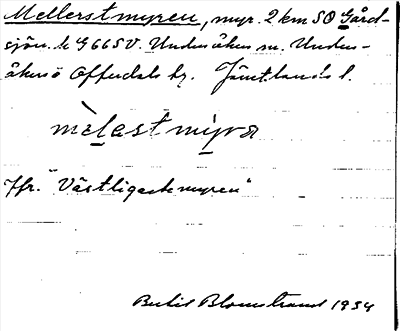 Mellerstmyren, myr. 2 km SO Gård-
sjön. k G 66 SV. Undersåkers sn. Unders-
åkers o Offerdals tg. Jämtlands l.
mèlastmỳra
Jfr. "Västligastemyren"
Bertil Blomstrand 1934